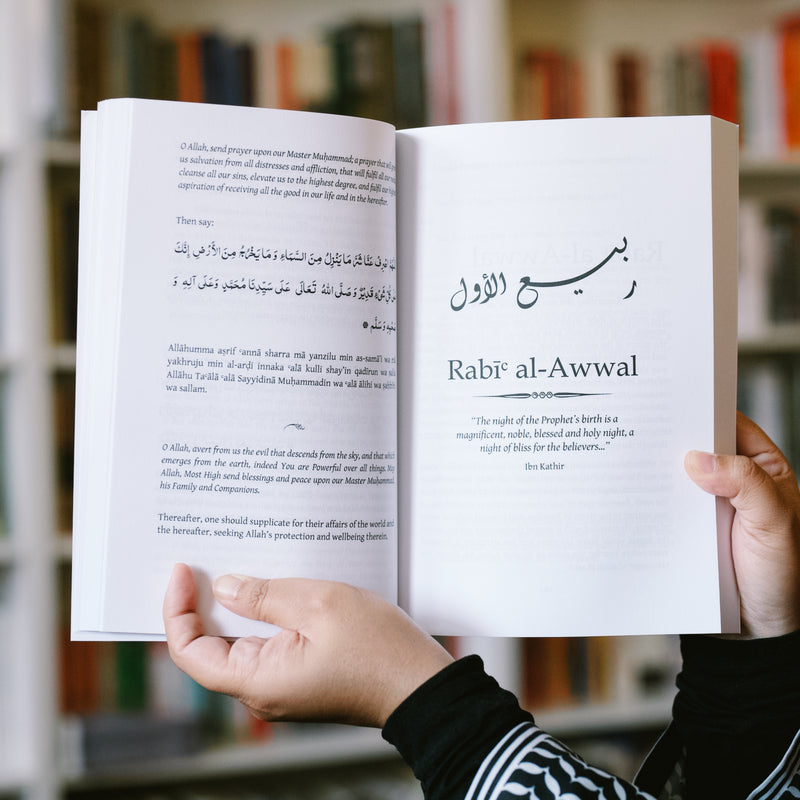 O Allah, send prayer upon our Master Muḥammad; a prayer that will
us salvation from all distresses and affliction, that will fulfil all our
cleanse all our sins, elevate us to the highest degree, and fulfil our
aspiration of receiving all the good in our life and in the hereafter.
Then say:
اصْرِف عَنَّا شَرَّ مَا يَنْزِلُ مِنَ السَّمَاءِ وَ مَا يَخْرُجُ مِنَ الأَرْضِ إِنَّكَ
شَيْءٍ قَدِيْرٌ وَ صَلَّى اللهُ تَعَالَى عَلَى سَيِّدِنَا مُحَمَّدٍ وَعَلَى آلِهِ وَ
وَسَلَّم
Allāhumma aṣrif ʿannā sharra mā yanzilu min as-samā'i wa
yakhruju min al-arḍi innaka ʿalā kulli shay'in qadirun wa
Allāhu Taʿālā ʿalā Sayyidinā Muḥammadin wa ʿalā ālihi wa
wa sallam.
O Allah, avert from us the evil that descends from the sky, and that which
emerges from the earth, indeed You are Powerful over all things. May
Allah, Most High send blessings and peace upon our Master Muḥammad,
his Family and Companions.
Thereafter, one should supplicate for their affairs of the world and
the hereafter, seeking Allah's protection and wellbeing therein.
ربيع الأول
Rabīʿ al-Awwal
"The night of the Prophet's birth is a
magnificent, noble, blessed and holy night, a
night of bliss for the believers..."
Ibn Kathir